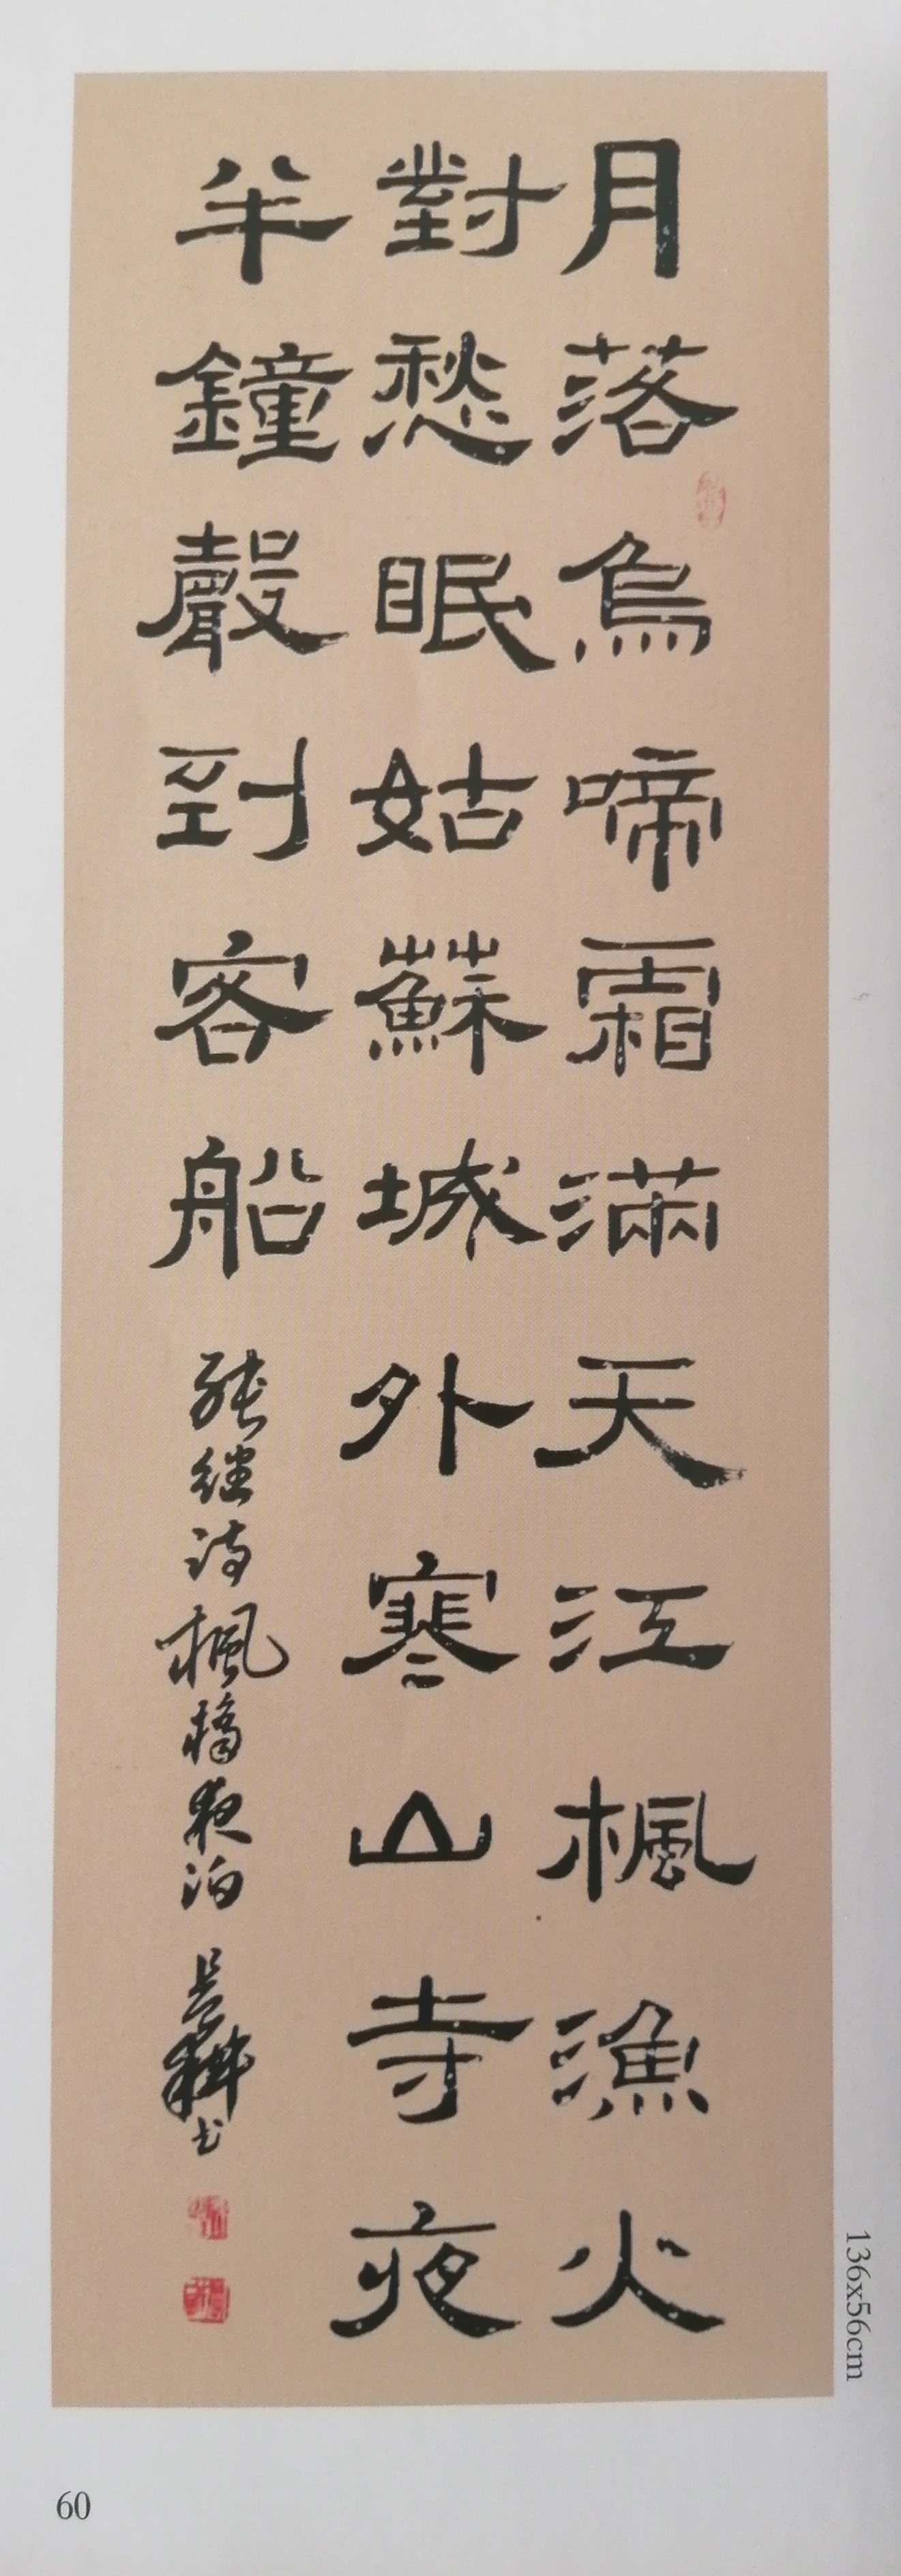 月落烏啼霜滿天江楓漁火
對愁眠姑蘇城外寒山寺夜
半鐘聲到客船
张继诗楓橋夜泊
书
136x56cm
60